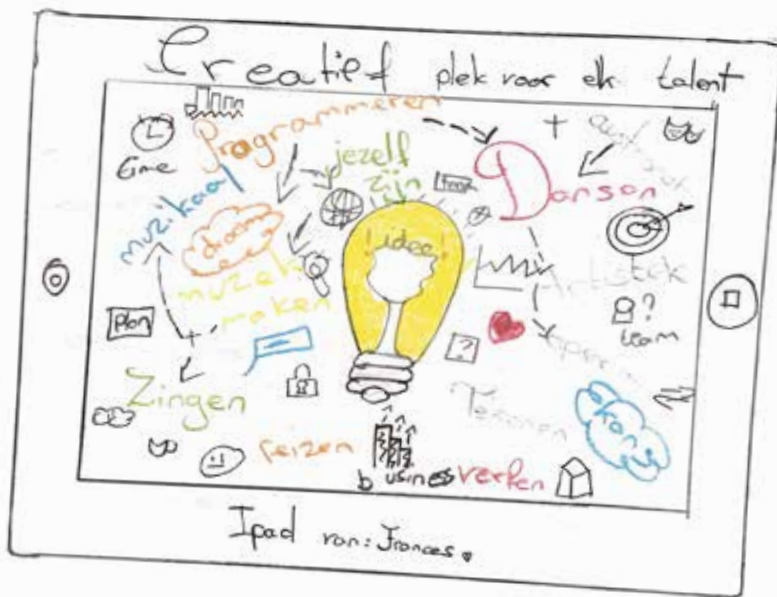 Creatief plek voor elk talent
time
Programmeren
jezelf
zijn
Danson
muzikaal
droom
idee!
muzek
maken
Artistek
plan
?
team
?
Zingen
Tekenen
kans
reizen
business
verfen
Ipad van: Frances.